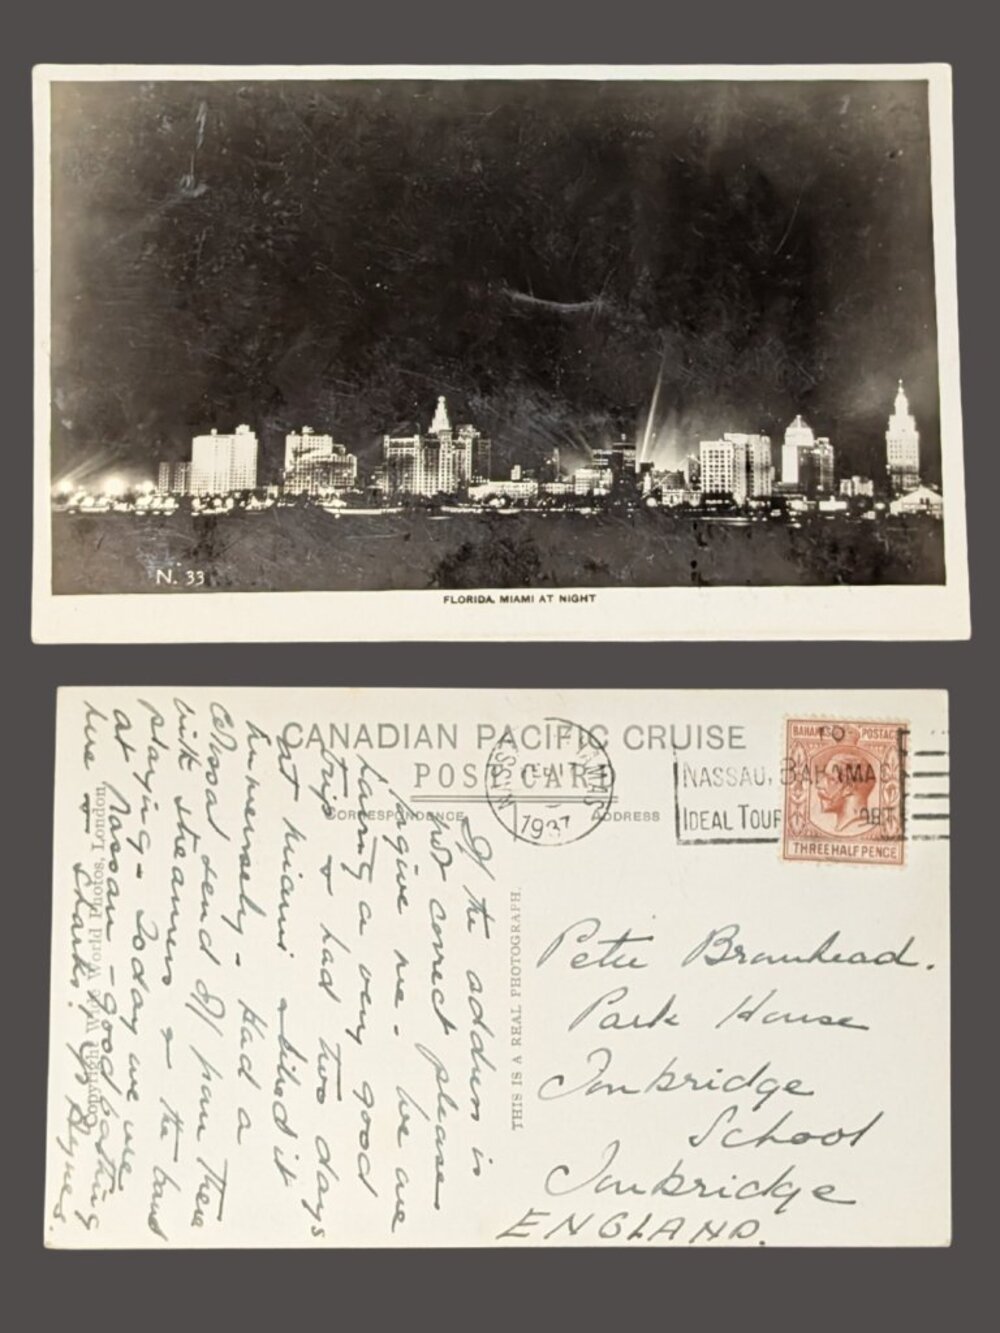 N. 33
FLORIDA, MIAMI AT NIGHT
CANADIAN PACIFIC CRUISE
POST CARD
CORRESPONDENCE
ADDRESS
NASSAU BAHAMAS
1937
TO
NASSAU, BAHAMAS
IDEAL TOUR
BAHAMAS POSTAGE
THREE HALF PENCE
THIS IS A REAL PHOTOGRAPH.
Copyright Wide World Photos, London.
If the address is
not correct please
forgive me. We are
having a very good
trip & had two days
at Miami & liked it
immensely - Had a
colossal send off from there
with streamers & the band
playing - Today we are
at Nassau - good bathing
here & sharks!
Peter Bromhead.
Park House
Tonbridge
School
Tonbridge
ENGLAND.